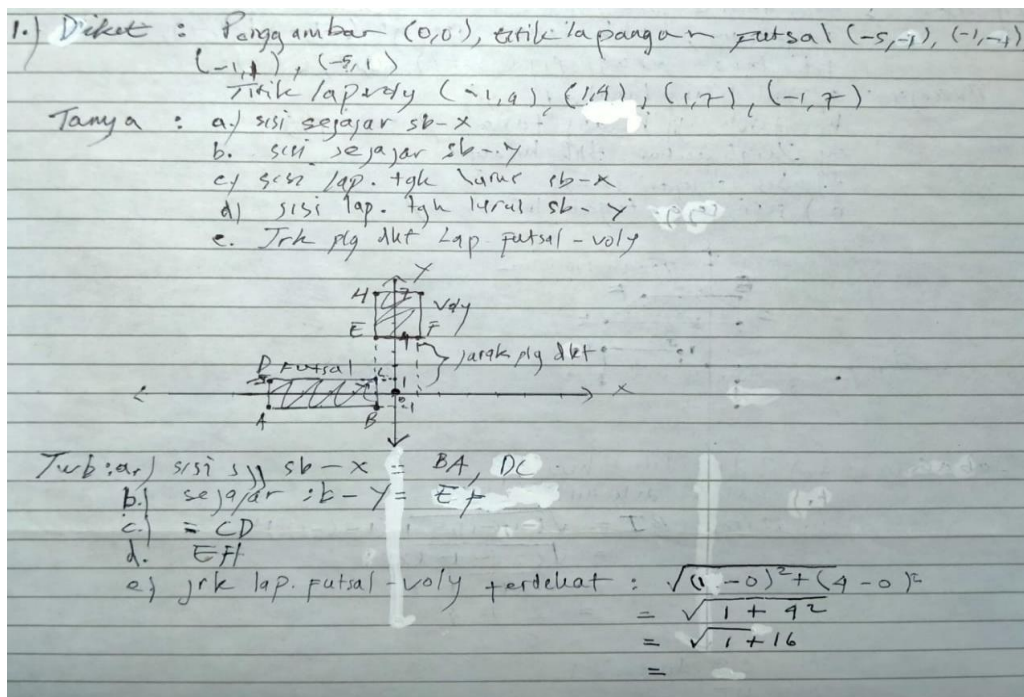 1.) Diket : Penggambar (0,0), titik lapangan futsal (-5,-1), (-1,-1)
(-1,1), (-5,1)
Titik lap voly (-1,4), (1,4), (1,7), (-1,7)
Tanya : a.) sisi sejajar sb-x
b. sisi sejajar sb-y
c) sisi lap. tgk lurus sb-x
d) sisi lap. tgk lurus sb-y
e. Jrk plg dkt Lap futsal - voly
Y
H 7 Voly
E 4 F
jarak plg dkt
D Futsal C 1
0 X
A B -1
Jwb : a.) sisi sjj sb-x = BA, DC
b.) sejajar sb-y = EF
c.) = CD
d. EH
e) jrk lap. futsal - voly terdekat : √(1 -0)²+(4-0)²
= √1 + 4²
= √1+16
=